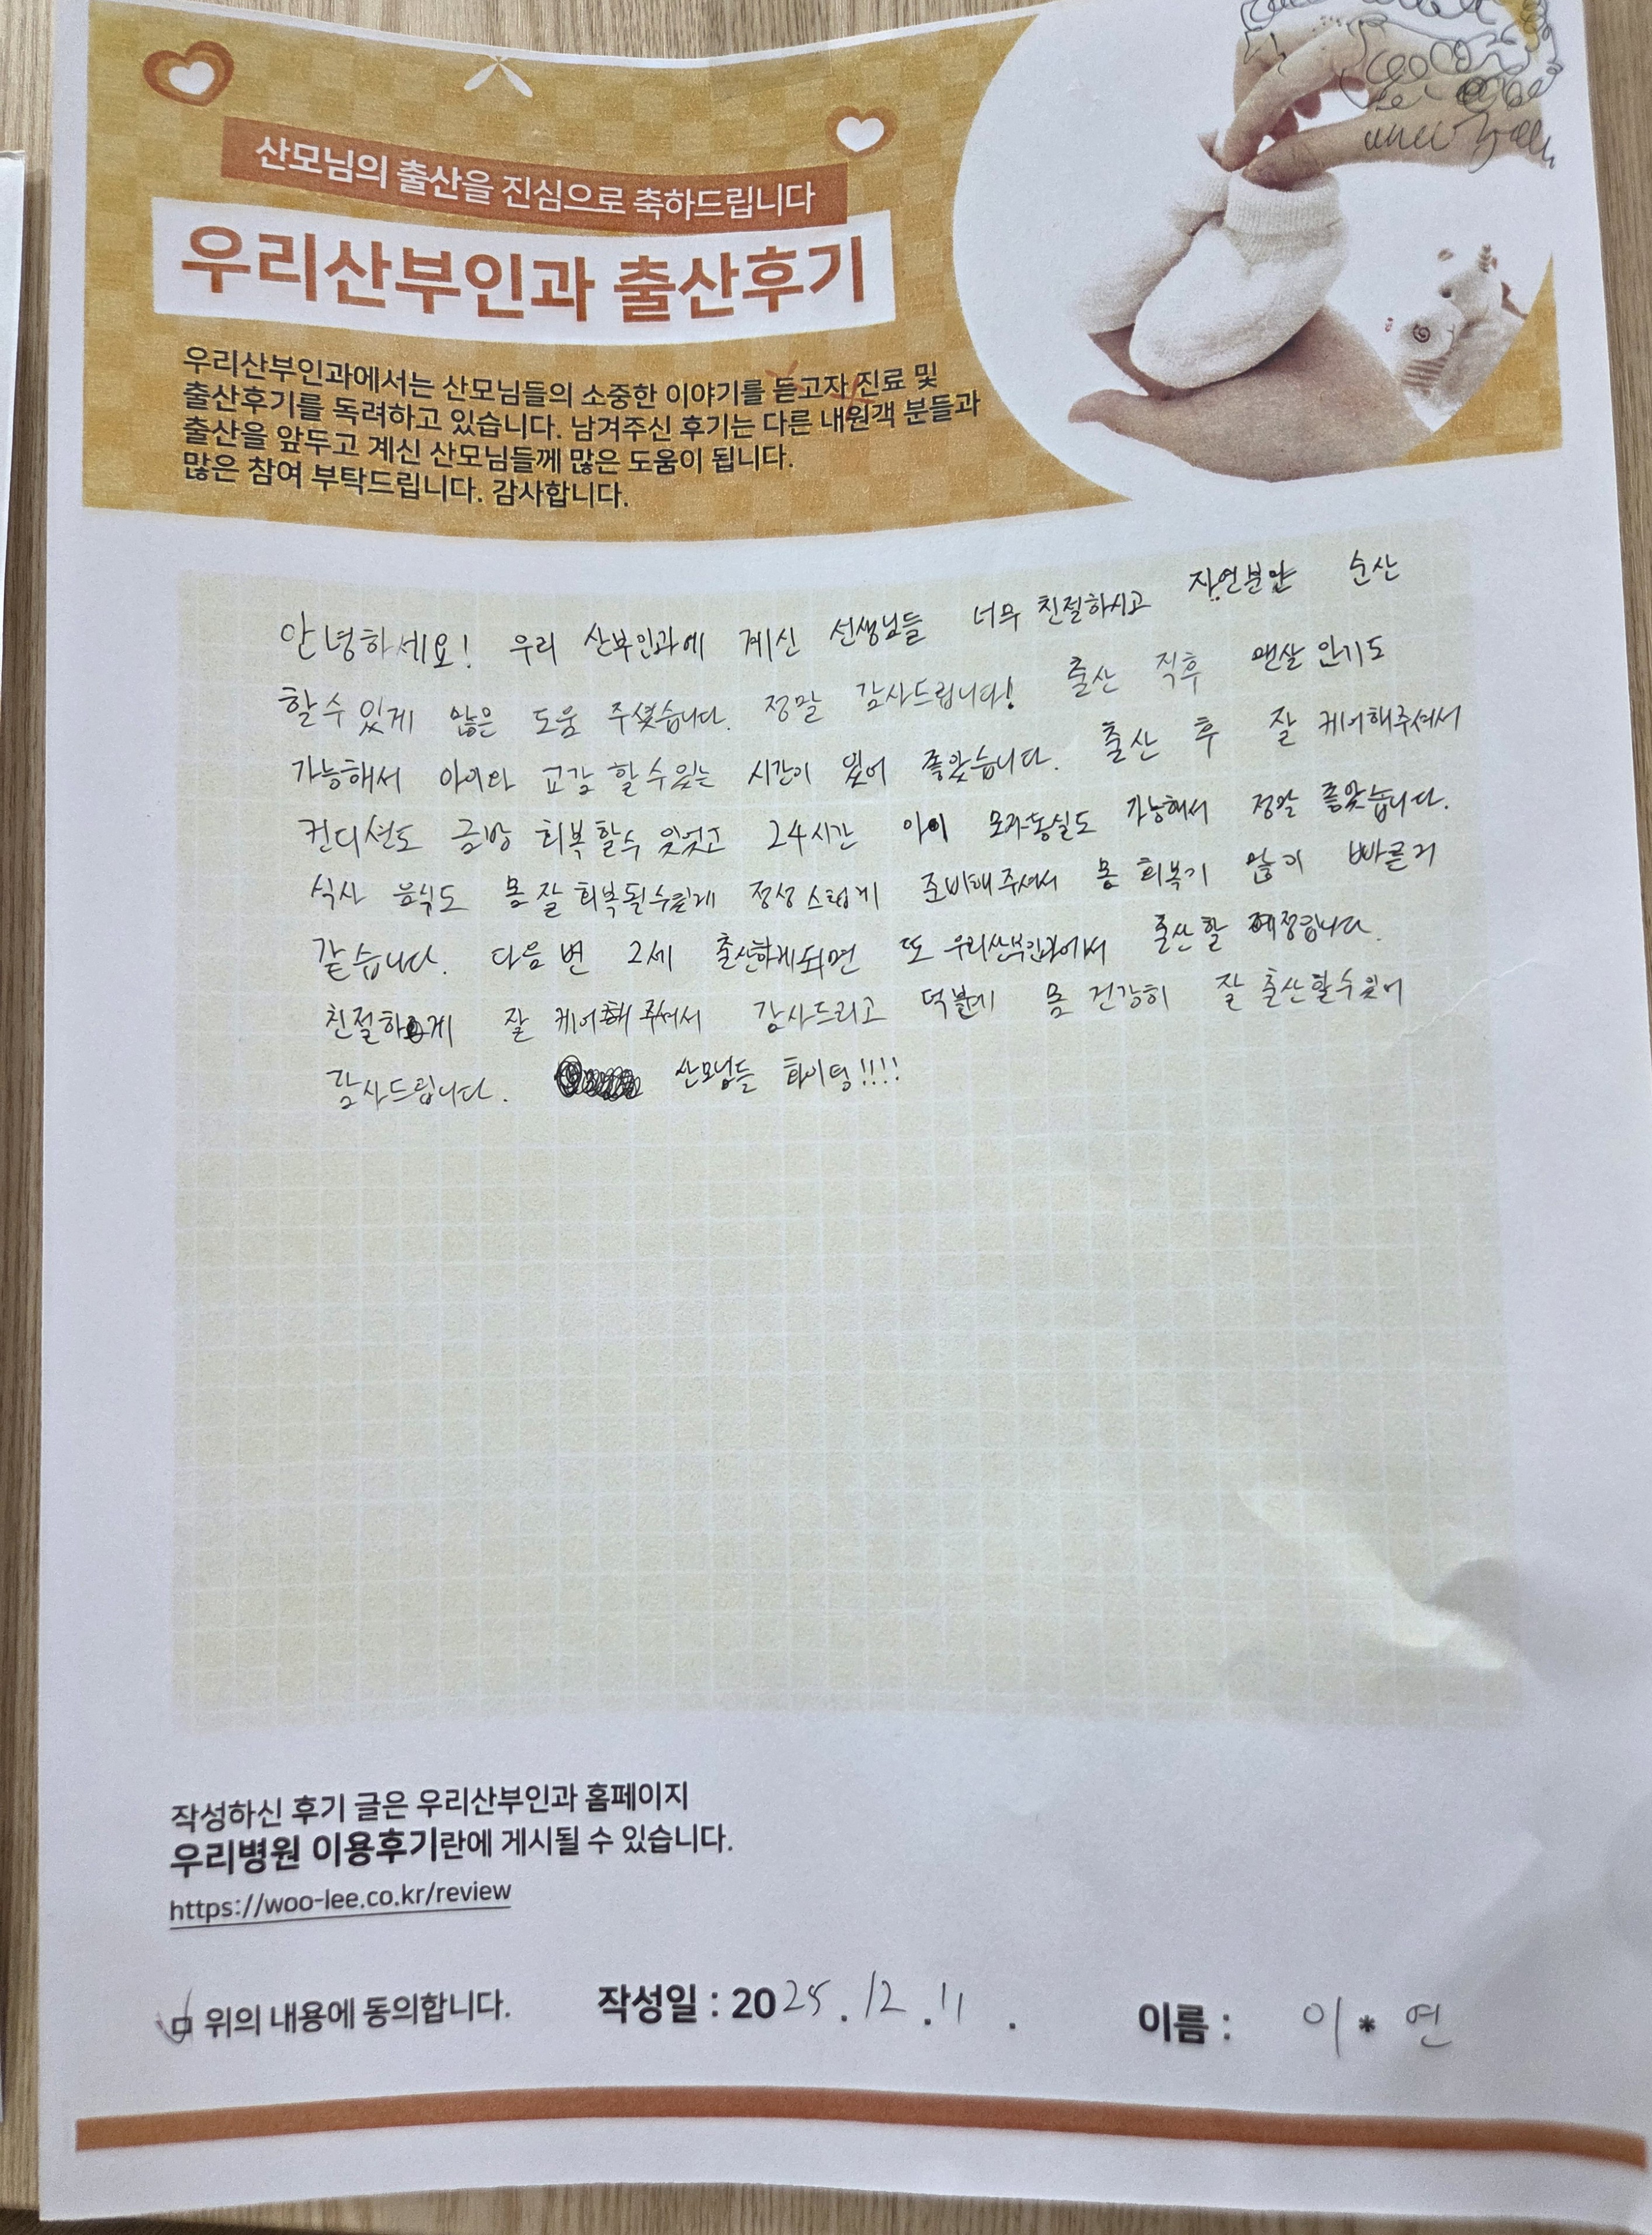 산모님의 출산을 진심으로 축하드립니다
우리산부인과 출산후기
우리산부인과에서는 산모님들의 소중한 이야기를 듣고자 진료 및
출산후기를 독려하고 있습니다. 남겨주신 후기는 다른 내원객 분들과
출산을 앞두고 계신 산모님들께 많은 도움이 됩니다.
많은 참여 부탁드립니다. 감사합니다.
안녕하세요! 우리 산부인과에 계신 선생님들 너무 친절하시고 자연분만 순산
할수있게 많은 도움 주셨습니다. 정말 감사드립니다! 출산 직후 맨살 안기도
가능해서 아이와 교감 할수있는 시간이 있어 좋았습니다. 출산 후 잘 케어해주셔서
컨디션도 금방 회복할수 있었고 24시간 아이 모자동실도 가능해서 정말 좋았습니다.
식사 음식도 몸 잘 회복될수있게 정성스럽게 준비해주셔서 몸 회복이 많이 빠른거
같습니다. 다음 번 2세 출산하게되면 또 우리산부인과에서 출산할 예정입니다.
친절하게 잘 케어해 주셔서 감사드리고 덕분에 몸 건강히 잘 출산할수있어
감사드립니다. 산모님들 화이팅!!!!
작성하신 후기 글은 우리산부인과 홈페이지
우리병원 이용후기란에 게시될 수 있습니다.
https://woo-lee.co.kr/review
위의 내용에 동의합니다. 작성일 : 2025.12.11. 이름 : 이*연